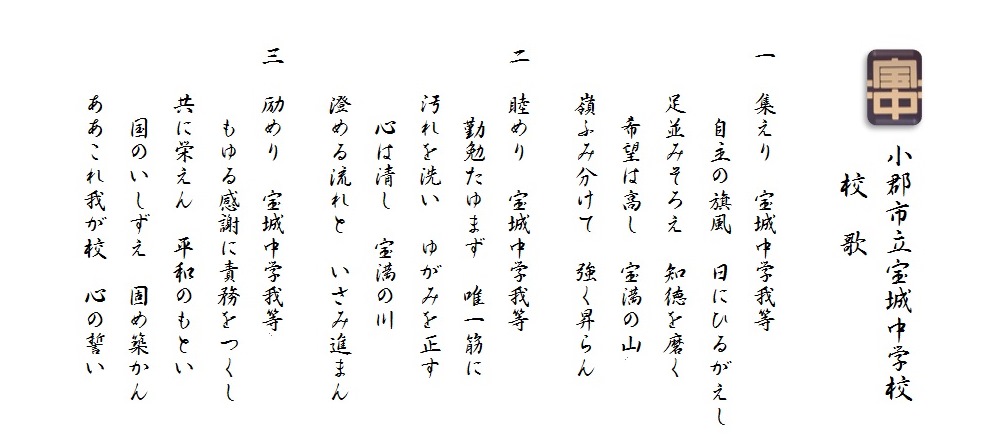 宝中
小郡市立宝城中学校
校　歌
一　集えり　宝城中学我等
自主の旗風　日にひるがえし
足並みそろえ　知徳を磨く
希望は高し　宝満の山
嶺ふみ分けて　強く昇らん
二　睦めり　宝城中学我等
勤勉たゆまず　唯一筋に
汚れを洗い　ゆがみを正す
心は清し　宝満の川
澄める流れと　いさみ進まん
三　励めり　宝城中学我等
もゆる感謝に責務をつくし
共に栄えん　平和のもとい
国のいしずえ　固め築かん
ああこれ我が校　心の誓い